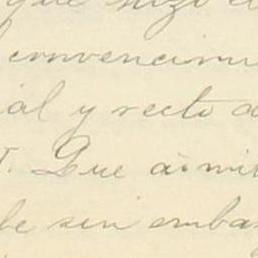 que hizo
convencimi
ial y recto
Que
de sin embar